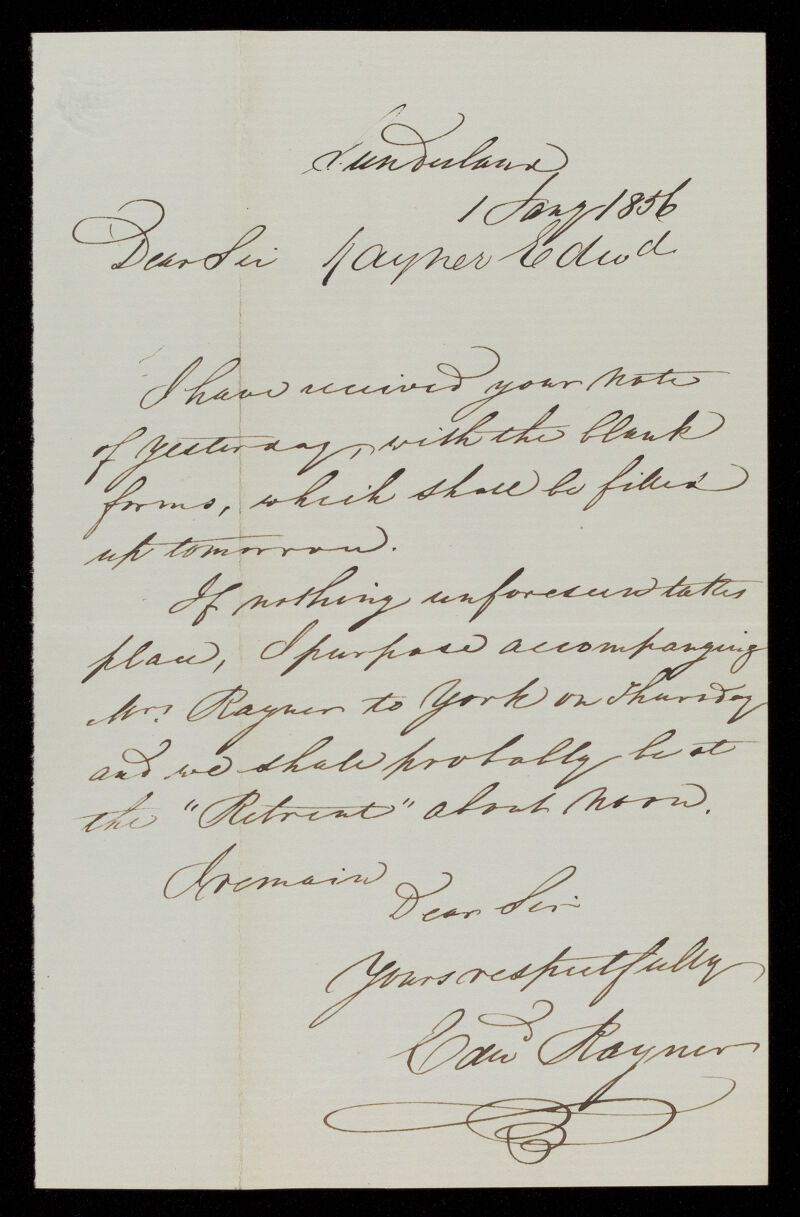 Sunderland
1 Jany 1856
Dear Sir Rayner Edwd
I have received your note
of yesterday, with the blank
forms, which shall be filled
up tomorrow.
If nothing unforeseen takes
place, I purpose accompanying
Mrs. Rayner to York on Thursday
and we shall probably be at
the "Retreat" about noon.
I remain
Dear Sir
Yours respectfully
Edwd Rayner